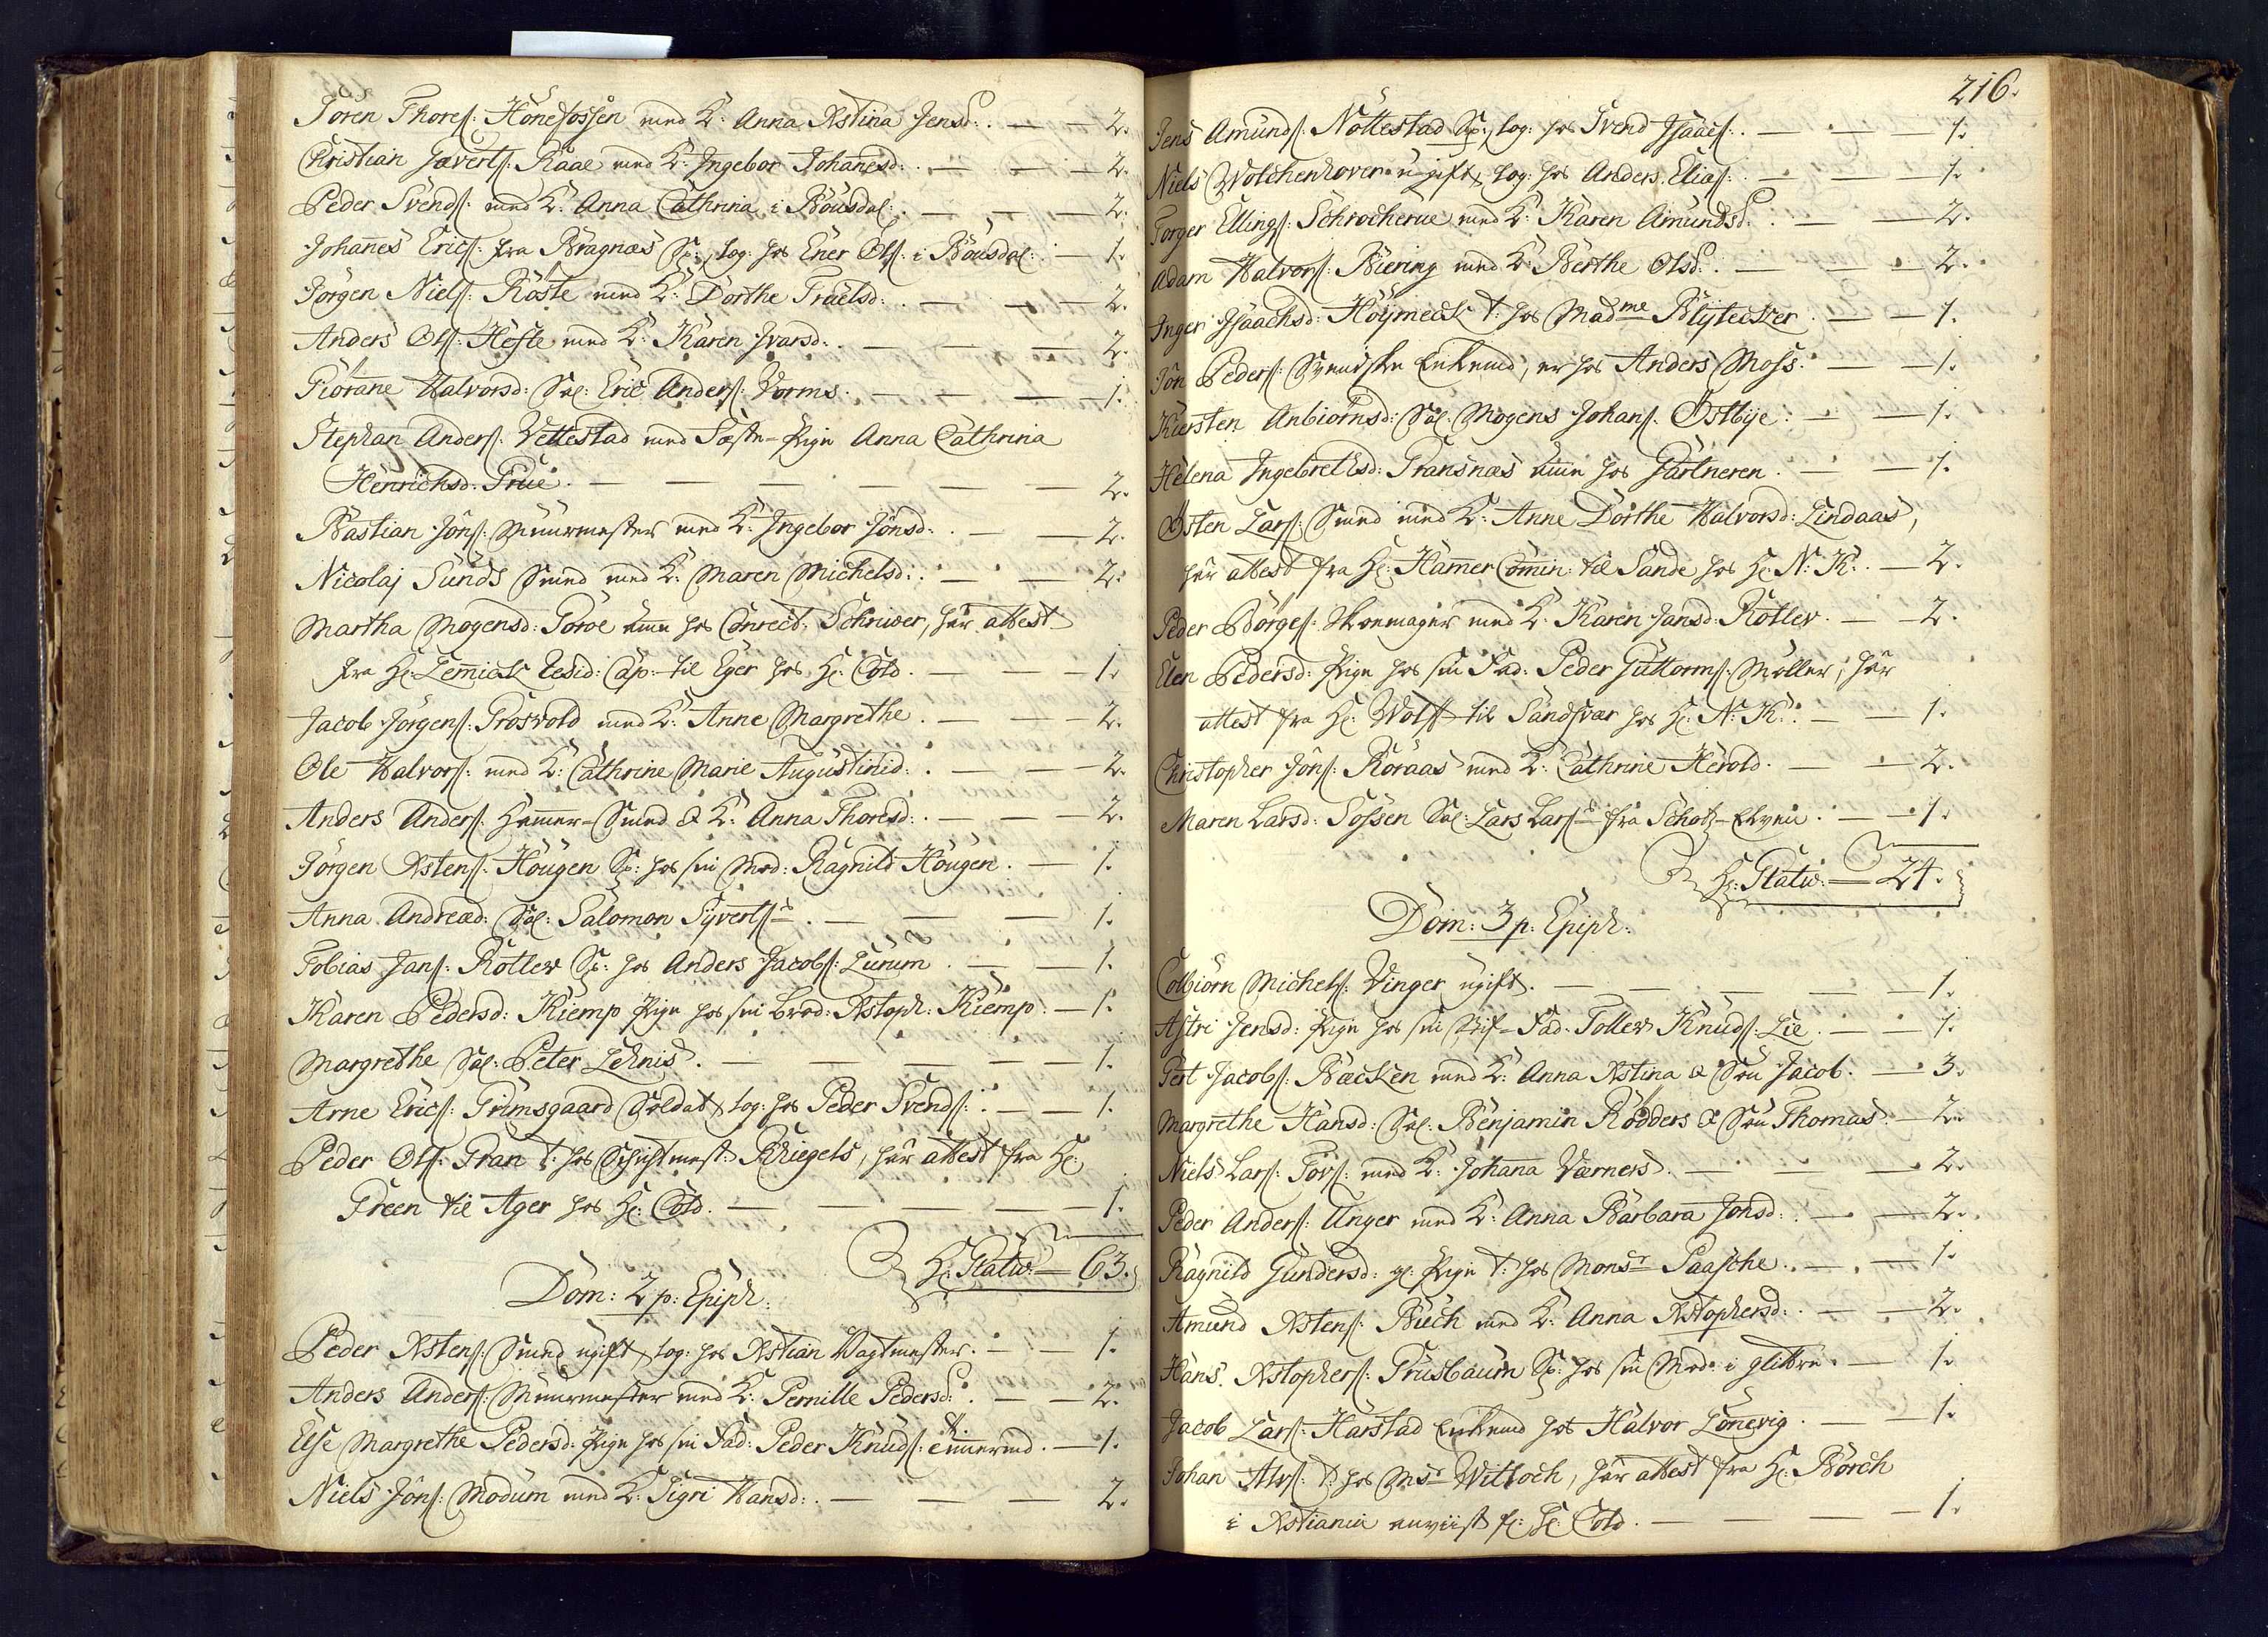 Sören Thores: Hönefossen med K: Anna Xstina Jensd: — 2.
Christian Jæverts: Raae med K: Ingebor Johanesd: — 2.
Peder Svends: med K: Anna Cathrina i Bousdal: — 2.
Johanes Erics: fra Bragnæs Sp: log: hos Ener Ols: i Bousdal: — 1.
Jörgen Niels: Röste med K: Dorthe Truelsd: — 2.
Anders Ols: Hefte med K: Karen Ivarsd: — 2.
Giörane Halvorsd: Sal: Eric Anders: Vorms. — 1.
Stephan Anders: Vettestad med Fæste-Pige Anna Cathrina
Henrichsd: Grüe. — 2.
Bastian Jöns: Muurmester med K: Ingebor Jönsd: — 2.
Nicolaj Sunds Smed med K: Maren Michelsd: — 2.
Martha Mogensd: Goroe Ame hos Conrect: Schriver, har attest
fra Hr: Lemich Resid: Cap: til Eger hos Hr: Cold. — 1.
Jacob Jörgens: Grosvold med K: Anne Margrethe. — 2.
Ole Halvors: med K: Cathrine Marie Augustinid: — 2.
Anders Anders: Hammer-Smed & K: Anna Thoresd: — 2.
Jörgen Xstens: Hougen Sp: hos sin Mod: Ragnild Hougen. — 1.
Anna Andread: Sal: Salomon Syverts: — 1.
Tobias Jans: Rotlev Sp: hos Anders Jacobs: Lurum — 1.
Karen Pedersd: Kiemp Pige hos sin Brod: Xstoph: Kiemp. — 1.
Margrethe Sal: Peter Lehnis. — 1.
Arne Erics: Grimsgaard Soldat, log: hos Peder Svends: — 1.
Peder Ols: Gran t: hos Schichtmest: Kriegels, har attest fra Hr:
Green til Ager hos Hr: Cold. — 1.
Hr: Statw: — 63.
Dom: 2 p: Epiph:
Peder Xstens: Smed ugift, log: hos Xstian Vagtmester. — 1.
Anders Anders: Muurmester med K: Pernille Pedersd: — 2.
Else Margrethe Pedersd: Pige hos sin Fad: Peder Knuds: — 1.
Niels Jöns: Modum med K: Sigri Hansd: — 2.
216.
Jens Amunds: Nöttestad Sp: log: hos Svend Isaacs: — 1.
Niels ugift, log: hos Anders Elias: — 1.
Torger Ellings: Schrocherue med K: Karen Amundsd: — 2.
Adam Halvors: Biering med K: Berthe Olsd: — 2.
Inger Isaachsd: Höymech t: hos Madme Blytecker — 1.
Jön Peders: Svendske Enkemd, er hos Anders Moss: — 1.
Kiersten Anbiörnsd: Sal: Mogens Johans: Östbye: — 1.
Helena Ingebrethsd: Gransnæs Ame hos Gartneren. — 1.
Östen Lars: Smed med K: Anne Dorthe Halvorsd: Lindaas,
har attest fra Hr: Hamer Comin: til Sande hos Hr: N: K: — 2.
Peder Börges: Skoemager med K: Karen Jansd: Rotlev. — 2.
Elen Pedersd: Pige hos sin Fad: Peder Guttorms: Möller, har
attest fra Hr: Wolff til Sandsvær hos Hr: N: K: — 1.
Christopher Jöns: Röraas med K: Cathrine Herold. — 2.
Maren Larsd: Fossen Sal: Lars Lars: fra Schotz-Elven. — 1.
Hr: Statw: — 24.
Dom: 3 p: Epiph:
Colbiörn Michels: Vinger ugift. — 1.
Astri Jensd: Pige hos sin Stif-Fad: Tollev Knuds: Lie. — 1.
Gert Jacobs: Bæcken med K: Anna Xstina & Sön Jacob. — 3.
Margrethe Hansd: Sal: Benjamin Rödders & Sön Thomas. — 2.
Niels Lars: Tövs: med K: Johana Værners. — 2.
Peder Anders: Unger med K: Anna Barbara Jonsd: — 2.
Ragnild Gundersd: gl: Pige t: hos Monsr Paasche. — 1.
Amund Xstens: Buch med K: Anna Xstophersd: — 2.
Hans Xstophers: Grusbaum Sp: hos sin Mod: i glittre. — 1.
Jacob Lars: Harstad Enkemd hos Halvor Lonevig. — 1.
Johan Alvs: t: hos Msr Wittloch, har attest fra Hr: Borch
i Xstiania anviist f: Hr: Cold. — 1.